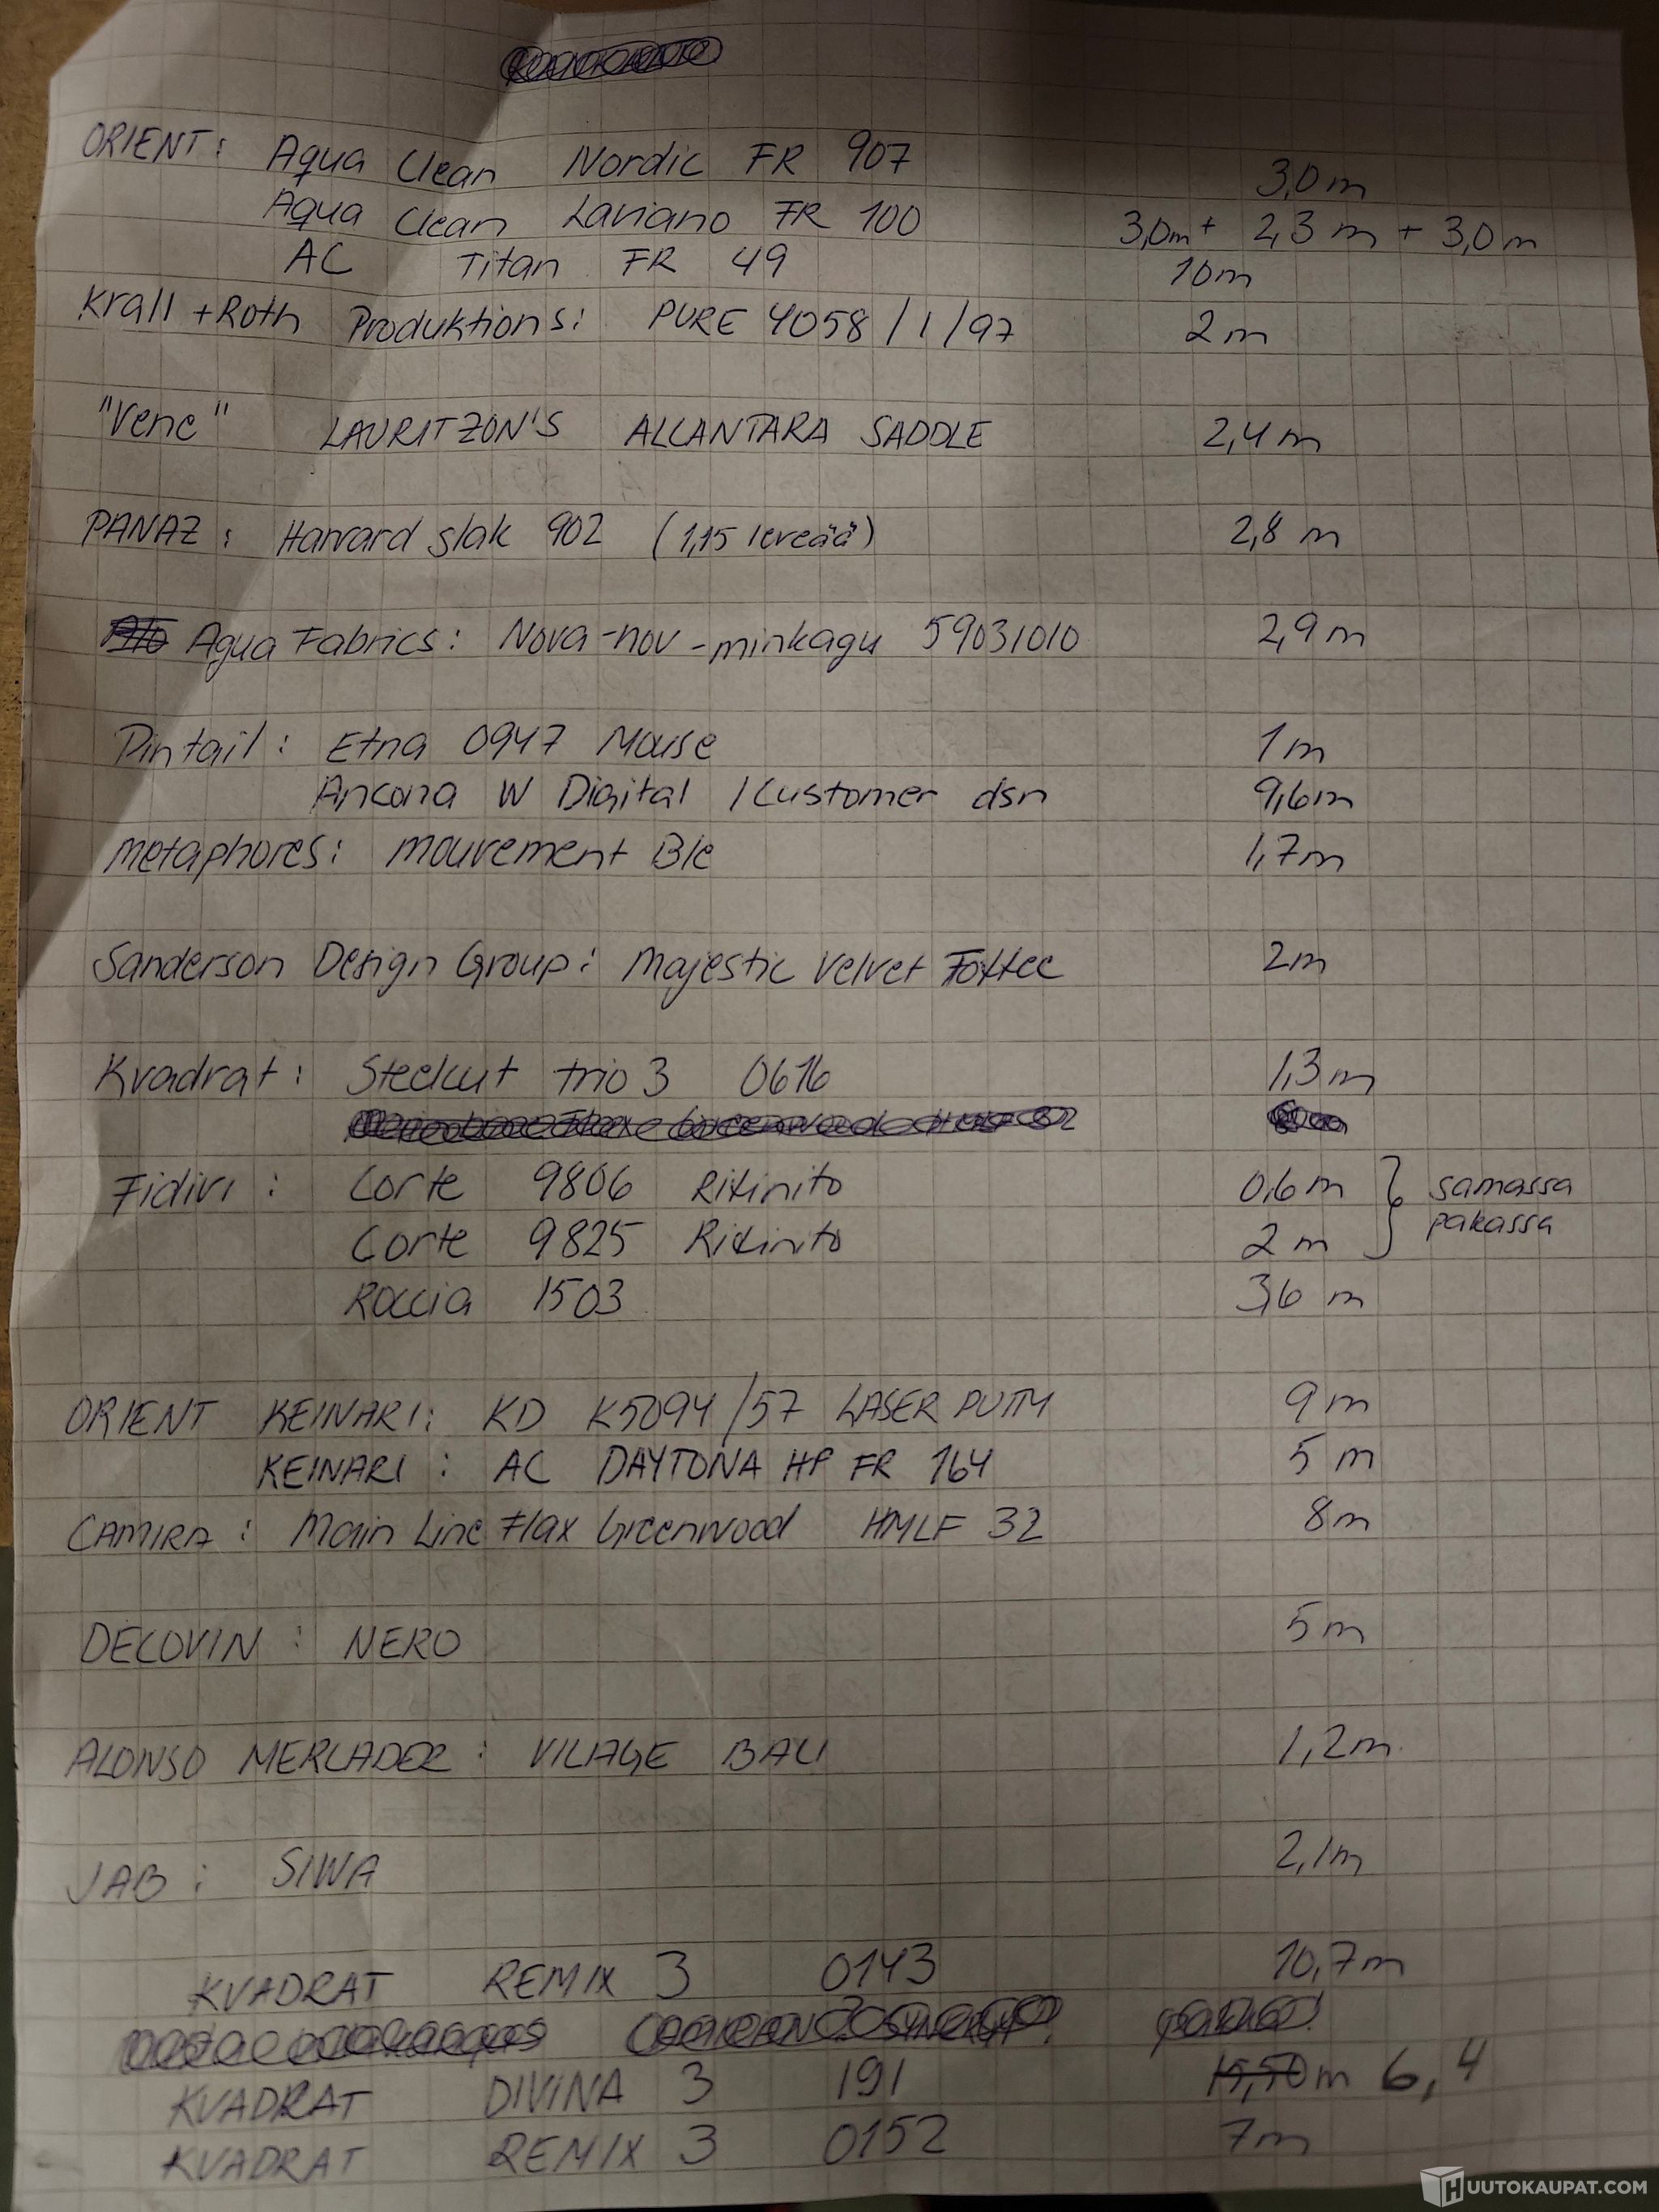 ORIENT: Aqua Clean Nordic FR 907 3,0m
Aqua Clean Laviano FR 100 3,0m + 2,3m + 3,0m
AC Titan FR 49 10m
Krall + Roth Produktions: PURE 4058/1/97 2m
"Vene" LAURITZON'S ALCANTARA SADDLE 2,4m
PANAZ: Harvard slak 902 (1,15 leveää) 2,8m
Agua Fabrics: Nova-nov-minkagu 59031010 2,9m
Pintail: Etna 0947 Mouse 1m
Ancona W Digital / Customer dsn 9,6m
Metaphores: Mouvement Ble 1,7m
Sanderson Design Group: Majestic Velvet 2m
Kvadrat: Steelcut trio 3 0616 1,3m
Fidivi: Corte 9806 Rifinito 0,6m } samassa
Corte 9825 Rifinito 2m pakassa
Roccia 1503 3,6m
ORIENT KEINARI: KD K5094/57 LASER PUTTY 9m
KEINARI: AC DAYTONA HP FR 164 5m
CAMIRA: Main Line Flax Greenwood HMLF 32 8m
DECOVIN: NERO 5m
ALONSO MERCADER: VILAGE BALI 1,2m
JAB: SIWA 2,1m
KVADRAT REMIX 3 0143 10,7m
KVADRAT DIVINA 3 191 15,50m 6,4
KVADRAT REMIX 3 0152 7m
HUUTOKAUPAT.COM